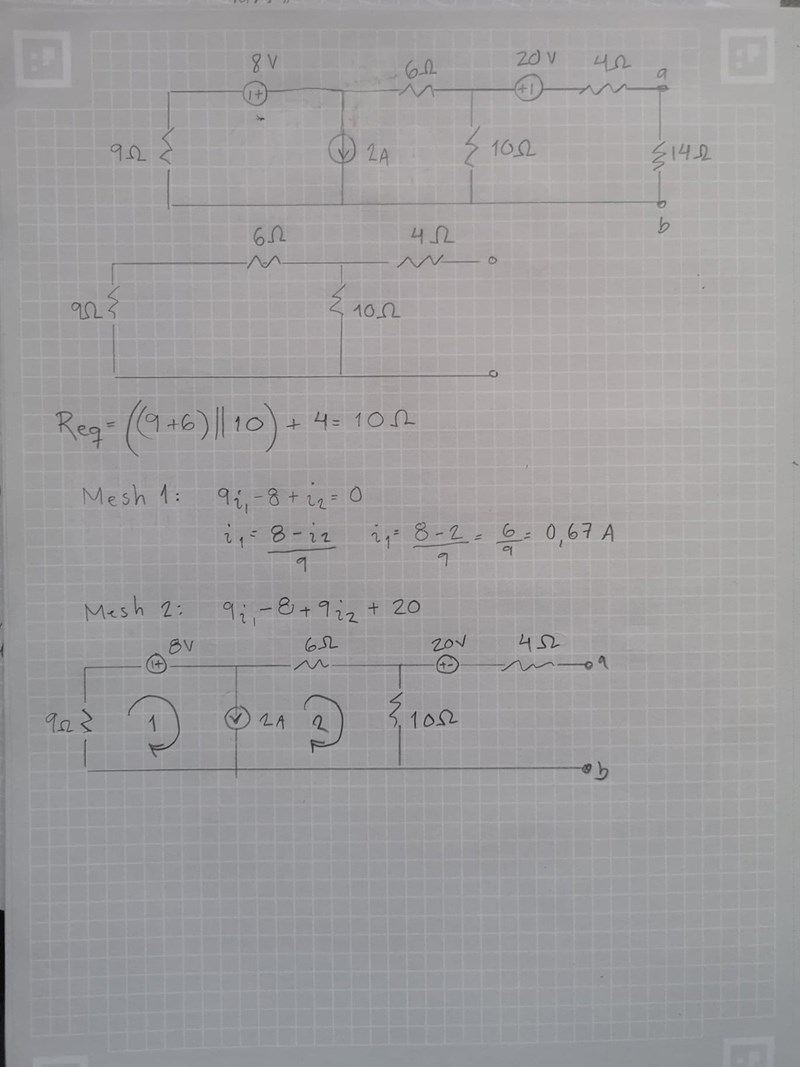 8V 6Ω 20V 4Ω a
1+ +1
9Ω 2A 10Ω 14Ω
b
6Ω 4Ω
9Ω 10Ω
Req = ((9+6)||10) + 4 = 10Ω
Mesh 1: 9i₁-8+i₂=0
i₁ = 8-i₂/9 i₁ = 8-2/9 = 6/9 = 0,67 A
Mesh 2: 9i₁-8+9i₂+20
8V 6Ω 20V 4Ω
1+ +- a
9Ω 1 2A 2 10Ω
b